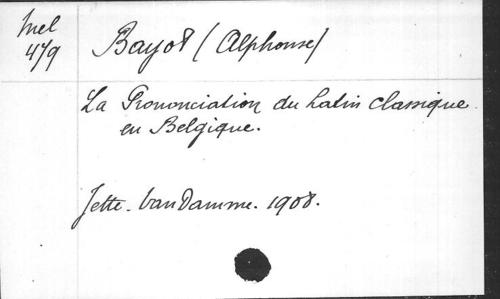 Mel
479
Bayot (Alphonse)
La Prononciation du Latin classique
en Belgique.
Jette. Van Damme. 1908.